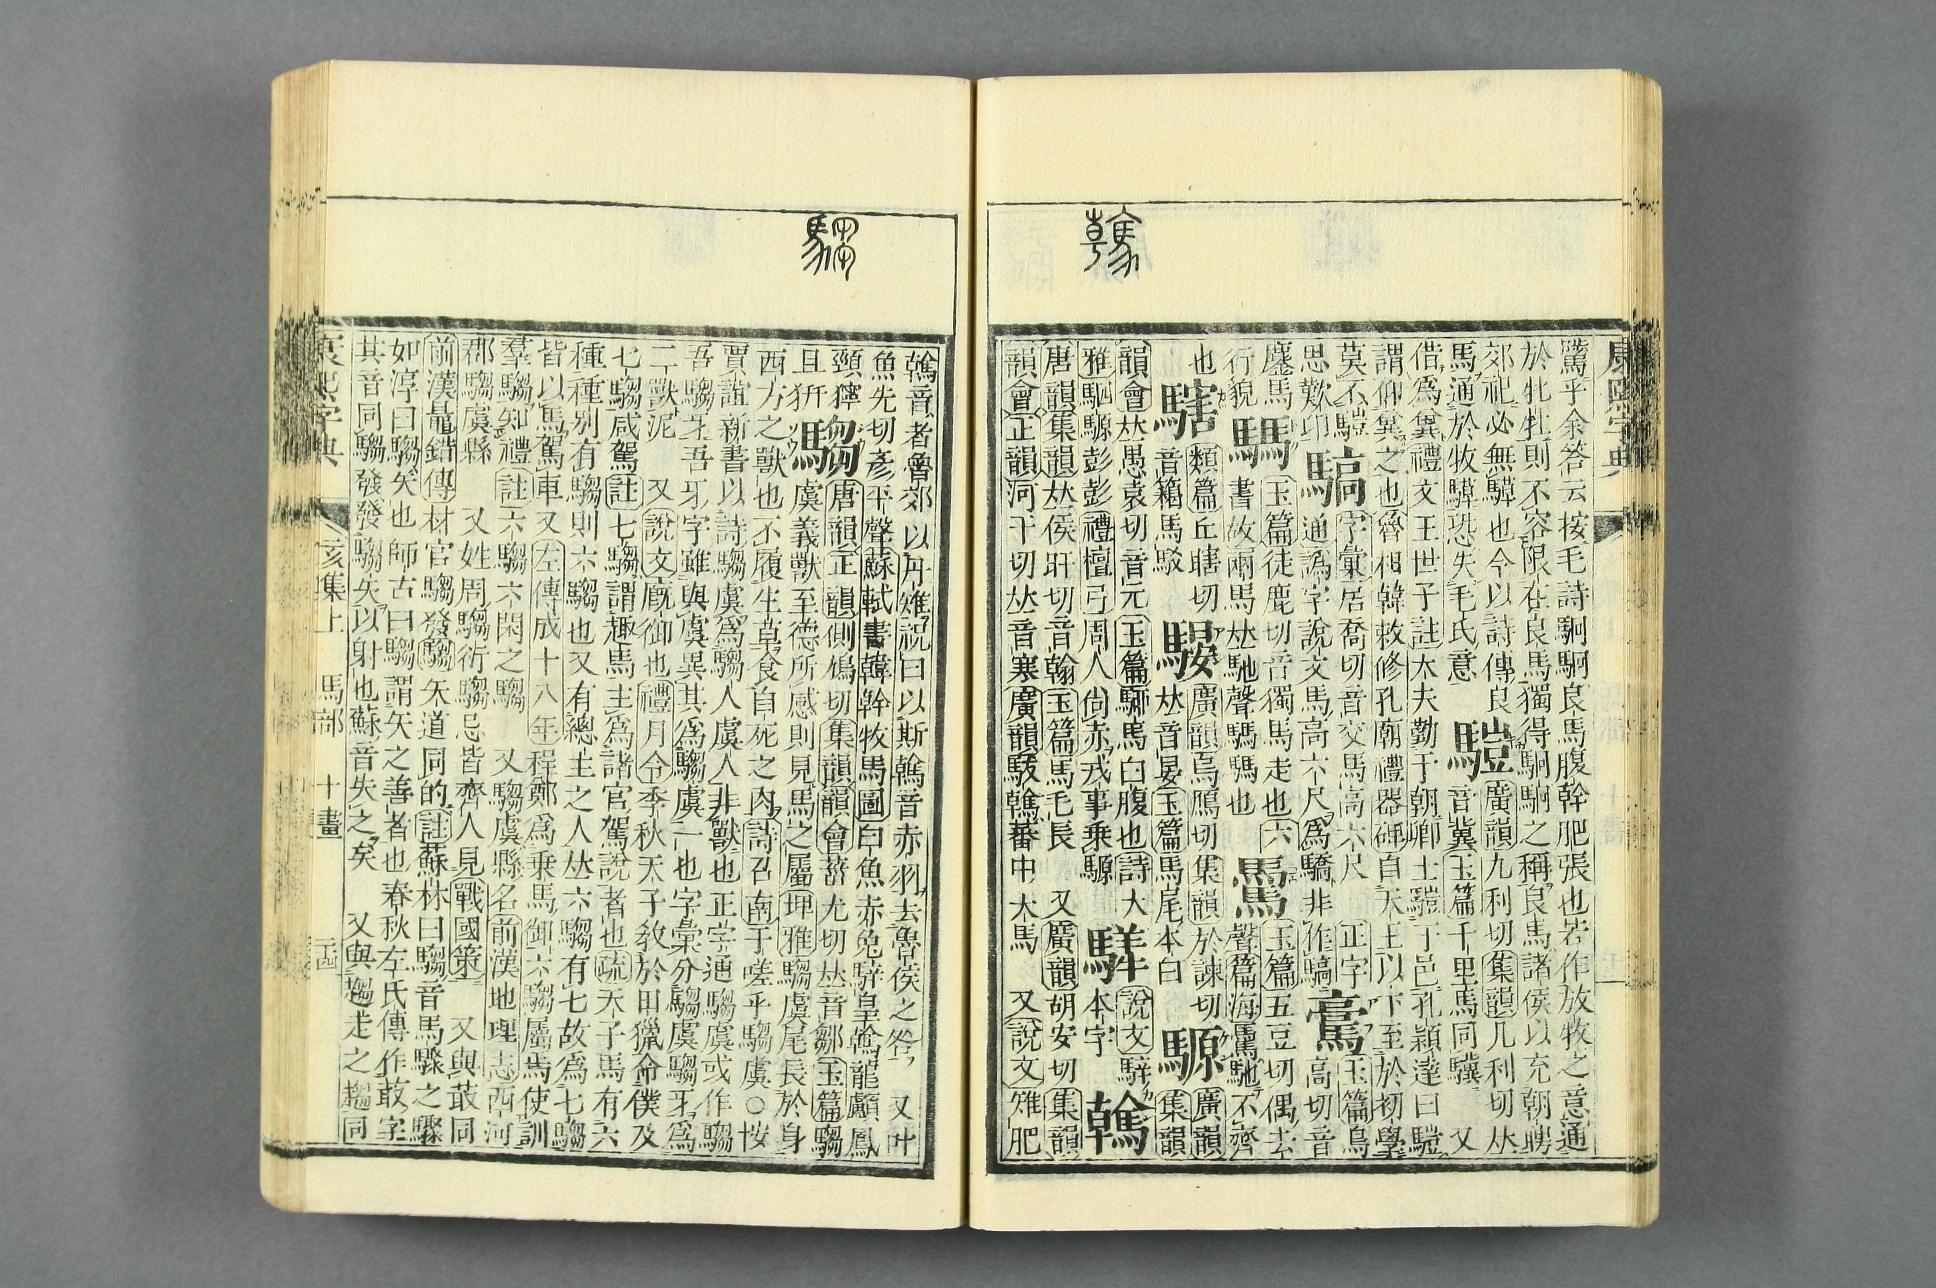 康熙字典
騭乎余答云按毛詩駉駉良馬腹幹肥張也若作放牧之意通
於牝牡則不容限在良馬獨得駉駉之稱良馬諸侯以充朝聘
郊祀必無騲也今以詩傳良 廣韻九利切集韻几利切𠀤
馬通於牧騲恐失毛氏意 𩥉 音冀玉篇千里馬同驥 又
借爲兾禮文王世子註大夫勤于朝卿士𩥉于邑孔穎達曰𩥉
謂仰兾之也魯相韓敕修孔廟禮器碑自天王以下至於初學
莫不𩥉 字彙居喬切音交馬高六尺 正字 玉篇烏
思歎卬 通譌字說文馬高六尺爲驕非作 高切音
鏖馬 玉篇徒鹿切音獨馬走也六 玉篇五豆切偶去
行貌 騳 書故兩馬𠀤馳聲騳騳也 聲篇海 馳不齊
也 類篇丘瞎切 廣韻烏鴈切集韻於諫切 廣韻
音 馬駁 騴 𠀤音晏玉篇馬尾本白 騵 集韻
韻會𠀤愚袁切音元玉篇騮馬白腹也詩大 說文騂
雅駟騵彭彭禮檀弓周人尙赤戎事乘騵 本字 䮧
唐韻集韻𠀤侯旰切音翰玉篇馬毛長 又廣韻胡安切集韻
韻會正韻河干切𠀤音寒廣韻駁䮧蕃中大馬 又說文雉肥
䮧音者魯郊以丹雉祝曰以斯䮧音赤羽去魯侯之咎 又叶
魚先切彥平聲蘇軾書韓幹牧馬圖白魚赤兔騂皇䮧龍顱鳳
頸獰 唐韻正韻側鳩切集韻韻會葘尤切𠀤音鄒玉篇騶
且姸 騶 虞義獸至德所感則見馬之屬埤雅騶虞尾長於身
西方之獸也不履生草食自死之肉詩召南于嗟乎騶虞○按
賈誼新書以詩騶虞爲騶人虞人非獸也正字通騶虞或作騶
吾騶牙吾牙字雖與虞異其爲騶虞一也字彙分騶虞騶牙爲
二獸泥 又說文廐御也禮月令季秋天子敎於田獵命僕及
七騶咸駕註七騶謂趣馬主爲諸官駕說者也疏天子馬有六
種種別有騶則六騶也又有總主之人𠀤六騶有七故爲七騶
皆以馬駕車又左傳成十八年程鄭爲乗馬御六騶屬焉使訓
羣騶知禮註六騶六閑之騶 又騶虞縣名前漢地理志西河
郡騶虞縣 又姓周騶衍騶忌皆齊人見戰國策 又與菆同
前漢鼂錯傳材官騶發騶矢道同的註蘇林曰騶音馬驟之驟
如淳曰騶矢也師古曰騶謂矢之善者也春秋左氏傳作菆字
其音同騶發發騶矢以射也蘇音失之矣 又與趨走之趨同
康熙字典 亥集上 馬部 十畫